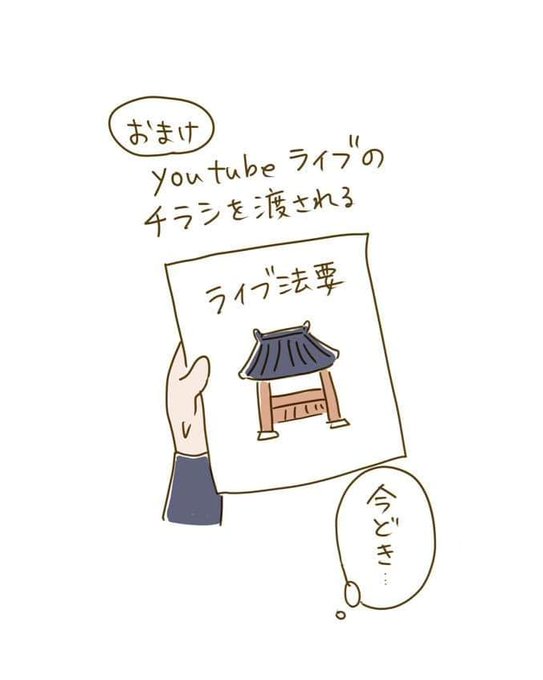 おまけ
youtube ライブの
チラシを渡される
ライブ法要
今どき…